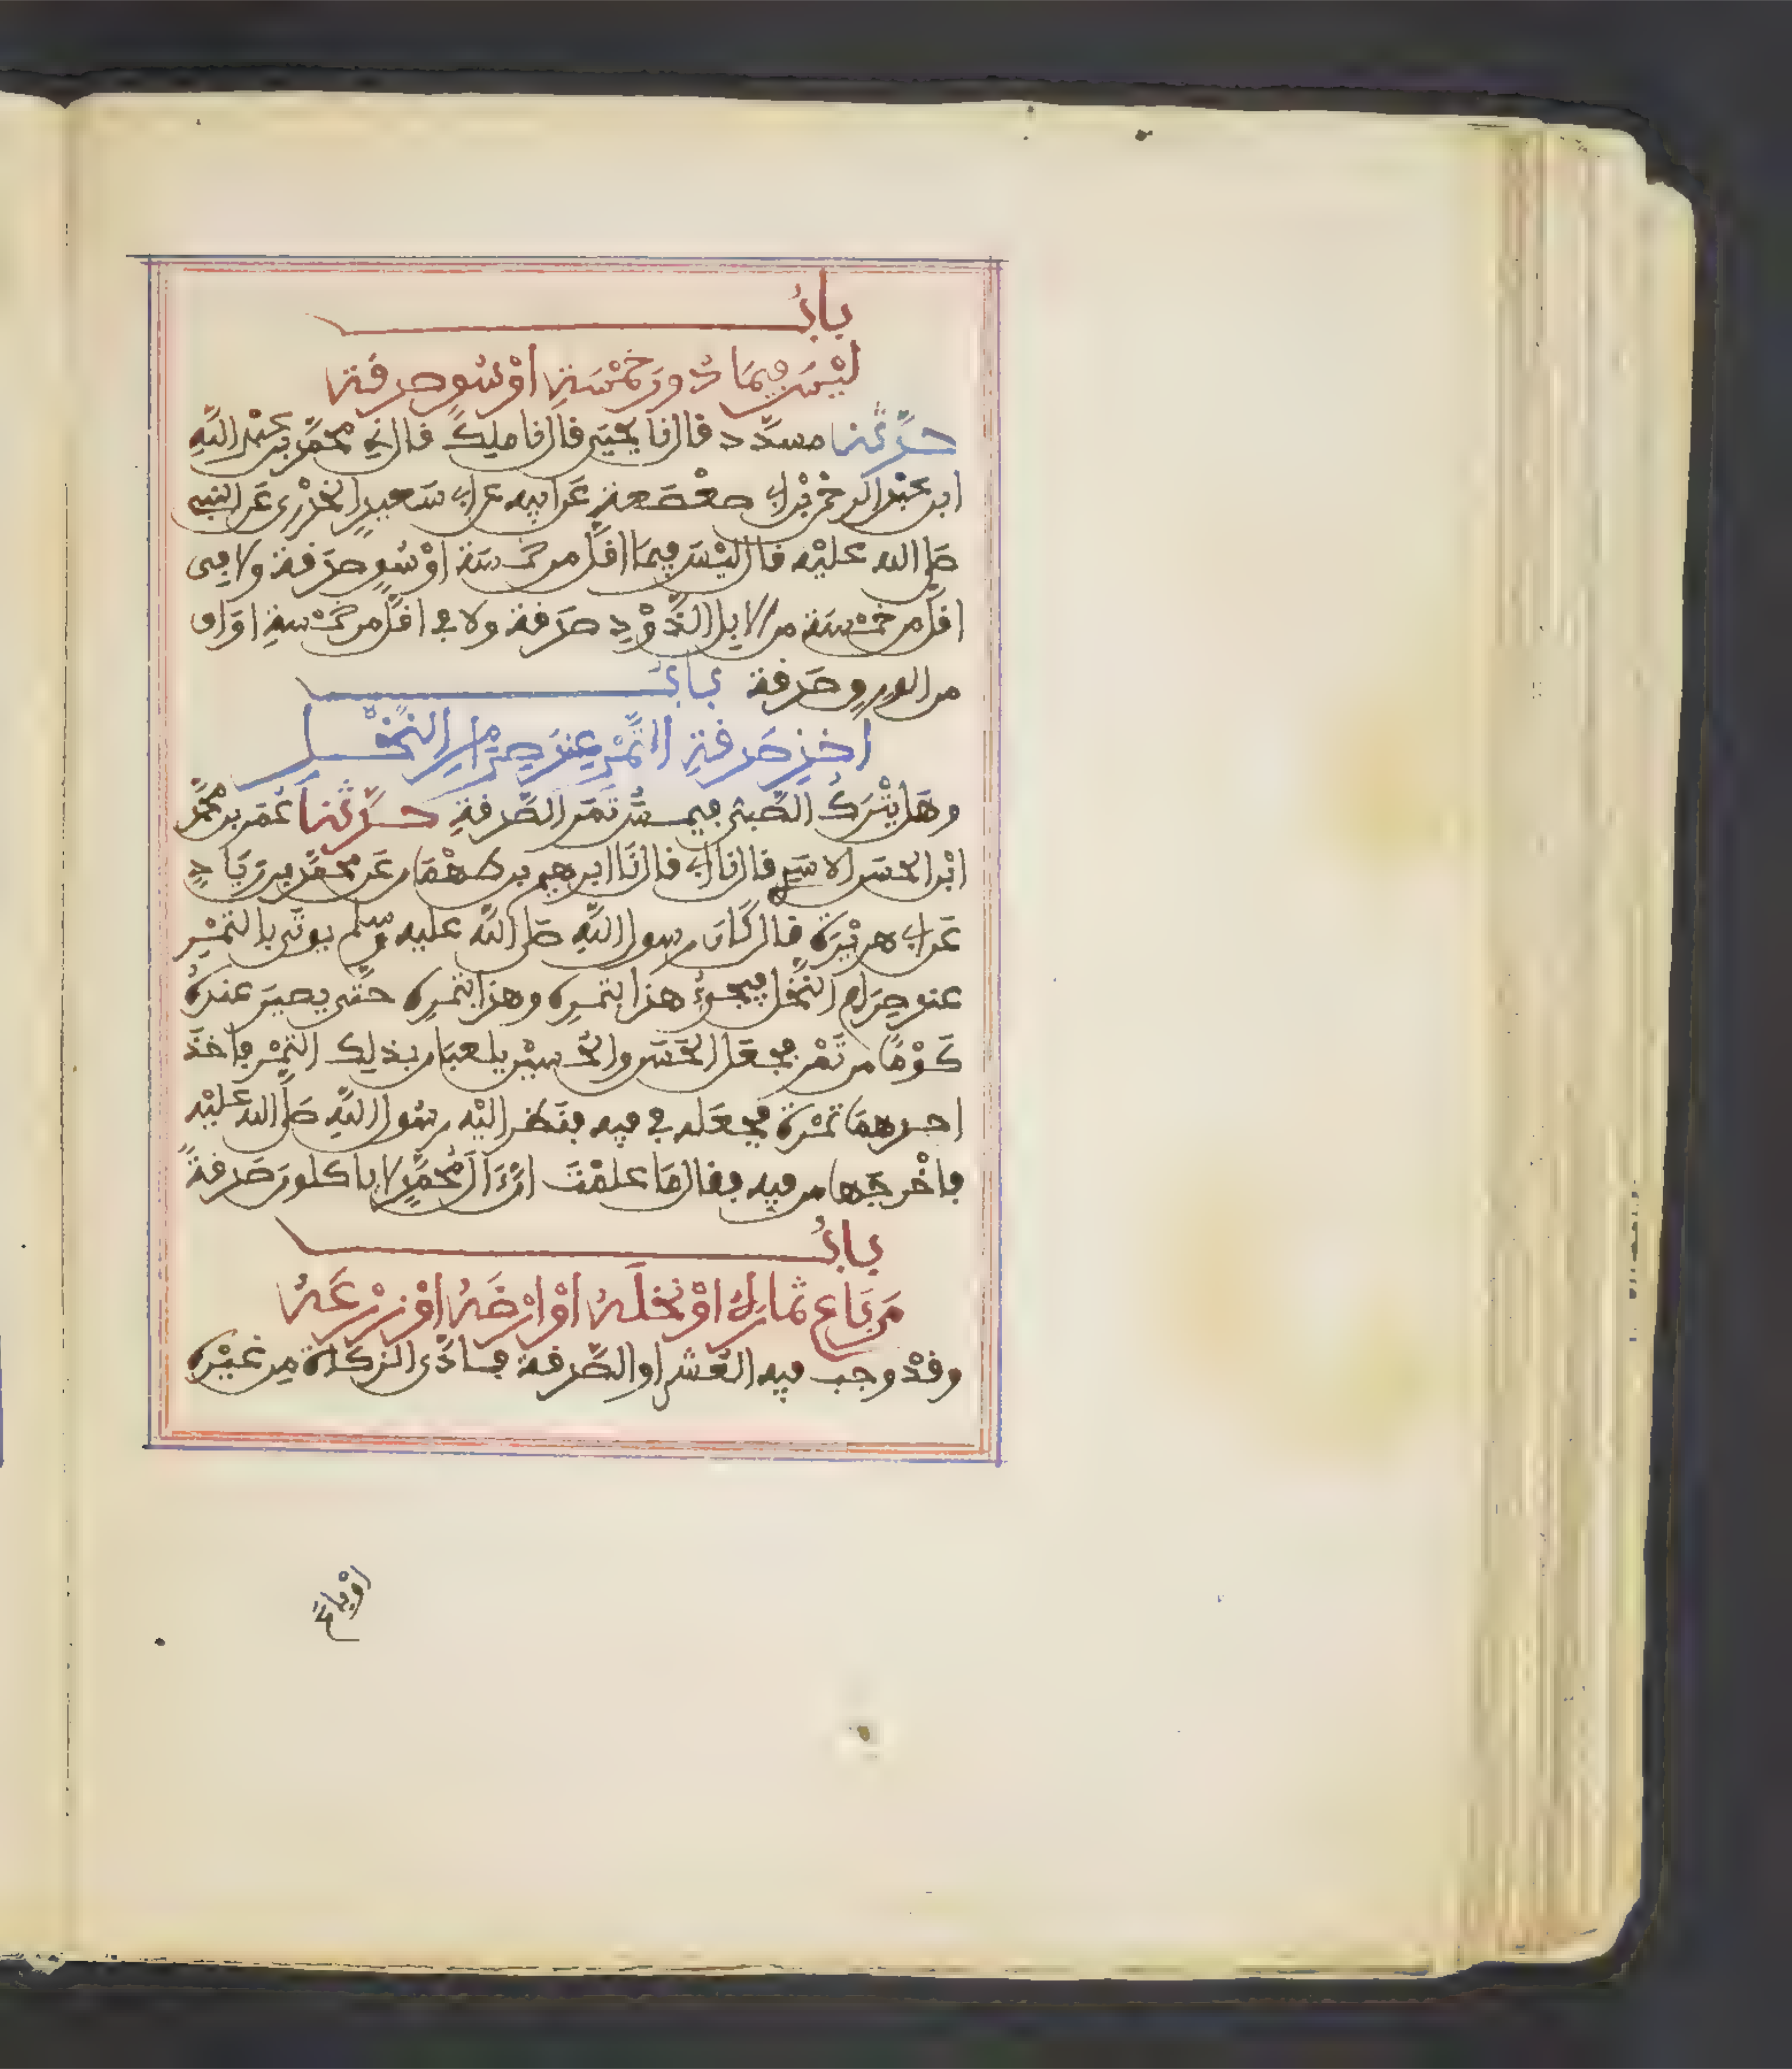 بابُ
لَيْسَ فِيمَا دُونَ خَمْسَةِ اَوْسُقٍ صدقَة
حدَّثنا مسدَّد قال نا يحيَى قال نا ملِكٌ قال نِي محمَّد بن عبْد اللَّهِ
ابن عبْد الرحمن بْن ابِي صعْصَعة عَن ابيه عن ابِي سَعيدٍ الخدْرِى عَن النبِيّ
صلى الله عليْه قال ليْسَ فِيمَا اقلَّ من خمْسَة اوْسُقٍ صدَقة ولا فِى
اقلَّ من خمْسَة من الابِل الذَّوْدِ صدَقة ولا في اقلَّ من خمْسةِ اوَاق
من الورِقِ صدَقة بابُ
اخذِ صَدقةِ التَّمْر عِندَ صِرَامِ النَّخْل
وهَل يتْرَكُ الصَّبىُّ فيمسُّ تمْرَ الصَّدقةِ حدَّثنا عُمَر بن محمَّد
ابْن الحسَن الاسَدِي قال نا ابِي قال نَا ابرهيم بن طهْمَان عَن محمَّد بن زيَادٍ
عَن ابِي هريْرَة قال كَانَ رسول اللَّهِ صلى اللَّه عليه وسلم يوتَى بالتمْر
عند صِرَام النَّخْل فيجىءُ هذا بتمرِه وهذا بتمرِه حتَّى يصيرَ عندهُ
كَوْمًا من تَمْر فجعَل الحَسَن والحُسيْن يلعبَان بذلِك التمْر فاخذَ
احدهمَا تمْرَة فجعَله في فيه فنَظر اليْه رسُول اللَّهِ صلَّى الله عليْه
فاخْرجَها من فيه فقال مَا علمْتَ انَّ ءَالَ مُحمَّدٍ لا ياكلونَ صَدقةً
بابُ
مَن بَاعَ ثمارهُ اوْ نخلَهُ اوْ ارْضَهُ اوْ زرْعَهُ
وقدْ وجب فيه العُشر او الصَّدقة فادَّى الزكاة مِن غيْره
اوْ باعَ